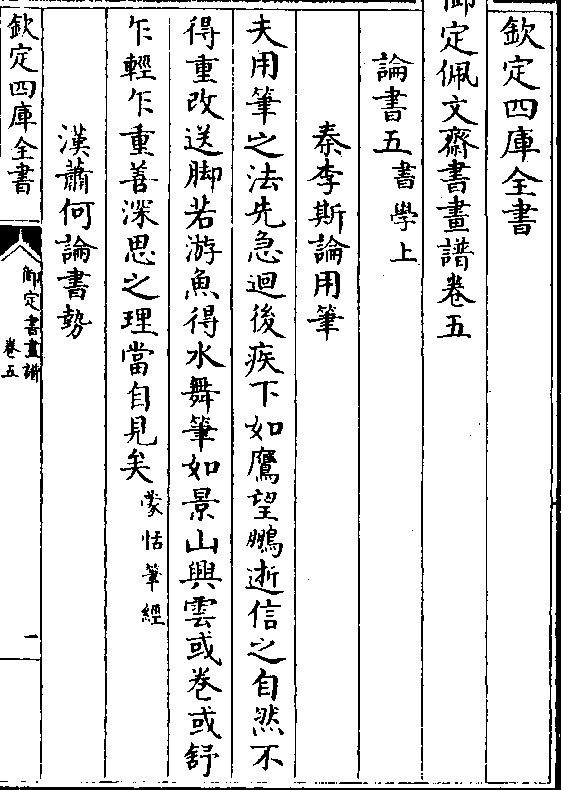 欽定四庫全書
御定佩文齋書畫譜卷五
論書五書學上
秦李斯論用筆
夫用筆之法先急迴後疾下如鷹望鵬逝信之自然不
得重改送脚若游魚得水舞筆如景山興雲或卷或舒
乍輕乍重善深思之理當自見矣蒙恬筆經
漢蕭何論書勢
欽定四庫全書
御定書畫譜
卷五
一